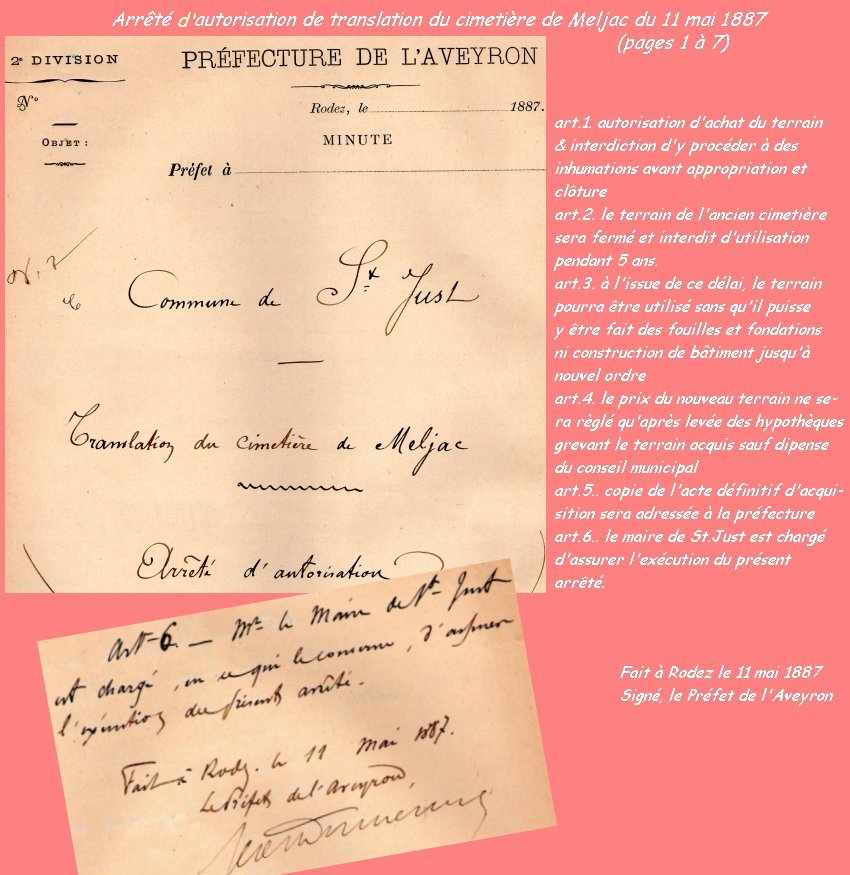 Arrêté d'autorisation de translation du cimetière de Meljac du 11 mai 1887
(pages 1 à 7)
2e DIVISION
PRÉFECTURE DE L'AVEYRON
No
Rodez, le 1887.
OBJET :
MINUTE
Préfet à
Commune de St Just
Translation du cimetière de Meljac
Arrêté d'autorisation
Art 6. — Mr le Maire de St Just
est chargé, en ce qui le concerne, d'assurer
l'exécution du présent arrêté.
Fait à Rodez. le 11 Mai 1887.
Le Préfet de l'Aveyron,
art.1. autorisation d'achat du terrain
& interdiction d'y procéder à des
inhumations avant appropriation et
clôture
art.2. le terrain de l'ancien cimetière
sera fermé et interdit d'utilisation
pendant 5 ans.
art.3. à l'issue de ce délai, le terrain
pourra être utilisé sans qu'il puisse
y être fait des fouilles et fondations
ni construction de bâtiment jusqu'à
nouvel ordre
art.4. le prix du nouveau terrain ne se-
ra règlé qu'après levée des hypothèques
grevant le terrain acquis sauf dipense
du conseil municipal
art.5.. copie de l'acte définitif d'acqui-
sition sera adressée à la préfecture
art.6.. le maire de St.Just est chargé
d'assurer l'exécution du présent
arrêté.
Fait à Rodez le 11 mai 1887
Signé, le Préfet de l'Aveyron